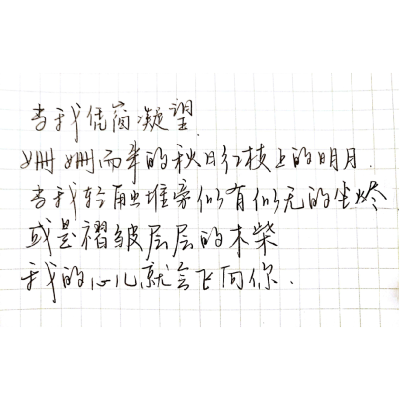 当我凭窗凝望.
姗姗而来的秋日红枝上的明月.
当我轻触堆旁似有似无的尘烬
或是褶皱层层的木柴
我的心儿就会飞向你.